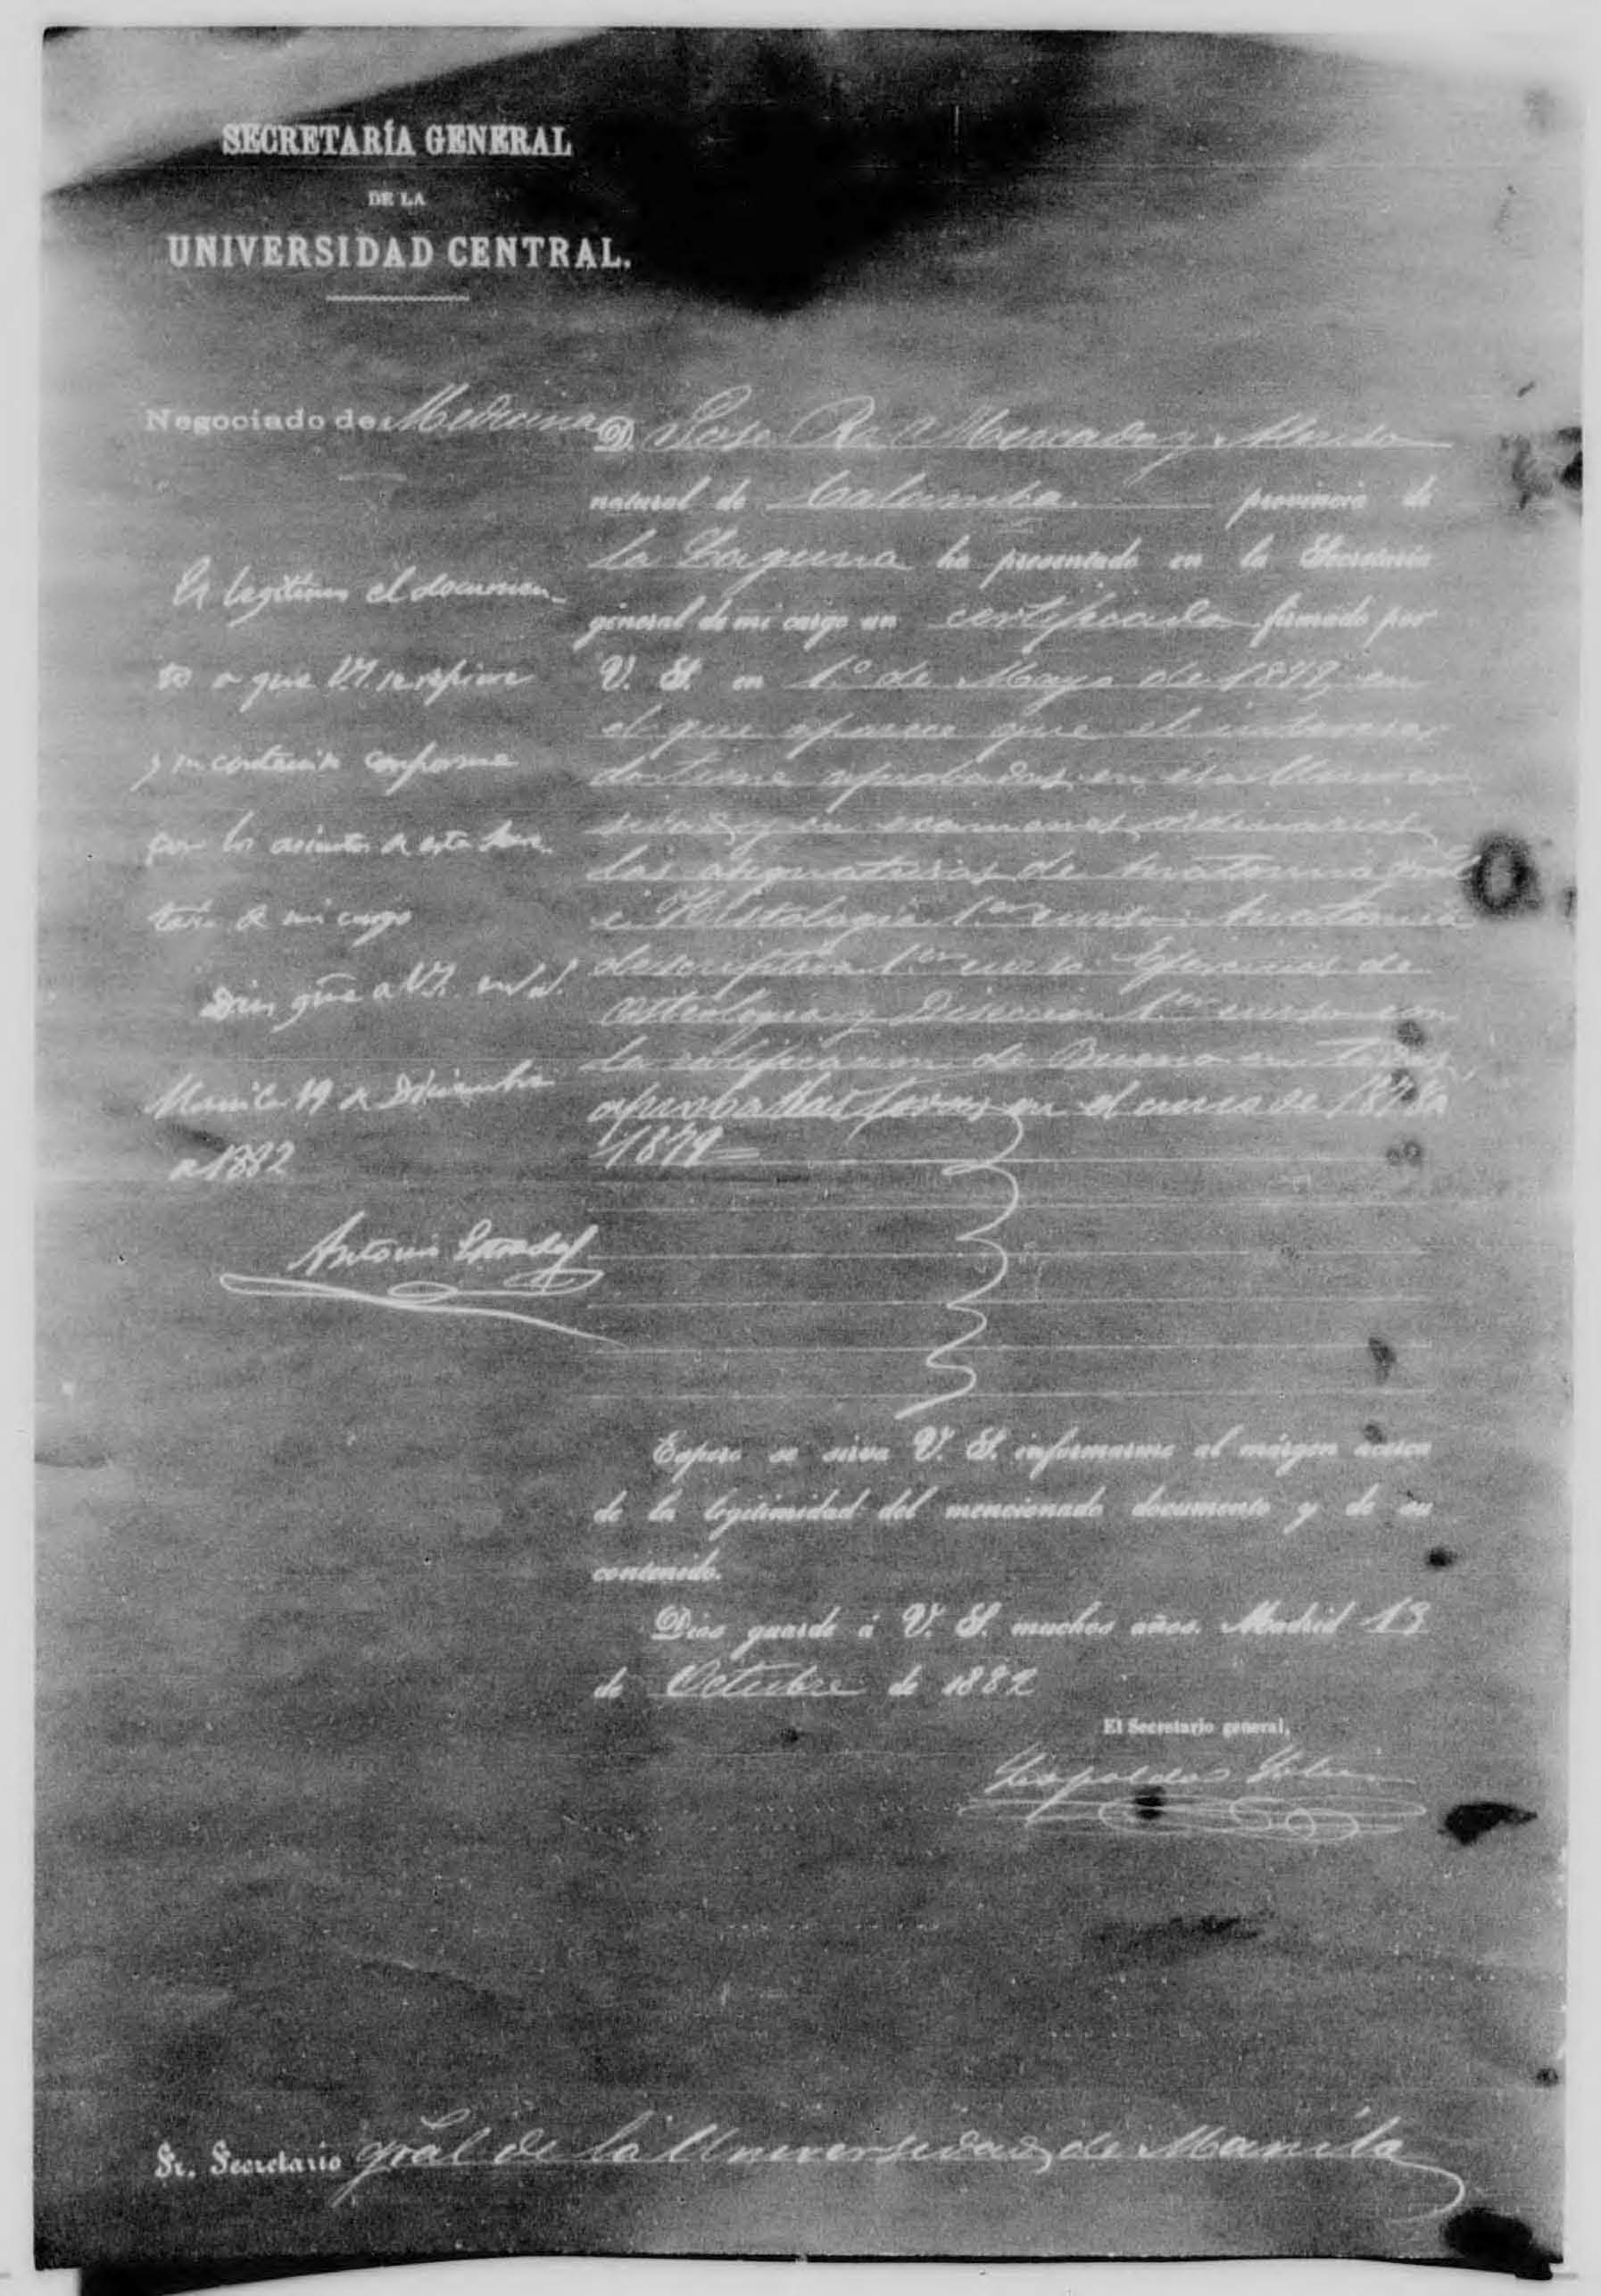 SECRETARÍA GENERAL
DE LA
UNIVERSIDAD CENTRAL.
Negociado de Medicina
Es legitimo el documen-
to a que V.S. se refiere
y su contenido conforme
con los asientos de esta Secre-
taria de mi cargo
Dios gũe a V.S. m.s a.s
Manila 19 de Diciembre
de 1882
Antonio Estrada
D. Jose R. Mercado y Alonso
natural de Calamba. provincia de
la Laguna ha presentado en la Secretaría
general de mi cargo un certificado firmado por
V. S. en 1.º de Mayo de 1879, en
el que aparece que el interesa
do tiene aprobadas en esa Univer
sidad y en examenes ordinarios
las asignaturas de Anatomia gral
e Histologia 1.er curso: Anatomia
descriptiva 1.er curso Ejercicios de
Osteologia y Diseccion 1.er curso con
la calificacion de Bueno en todas,
aprobadas todas en el curso de 1878 a
1879=
Espero se sirva V. S. informarme al márgen acerca
de la legitimidad del mencionado documento y de su
contenido.
Dios guarde á V. S. muchos años. Madrid 13
de Octubre de 1882
El Secretario general,
Leopoldo Solier
Sr. Secretario gral de la Universidad de Manila